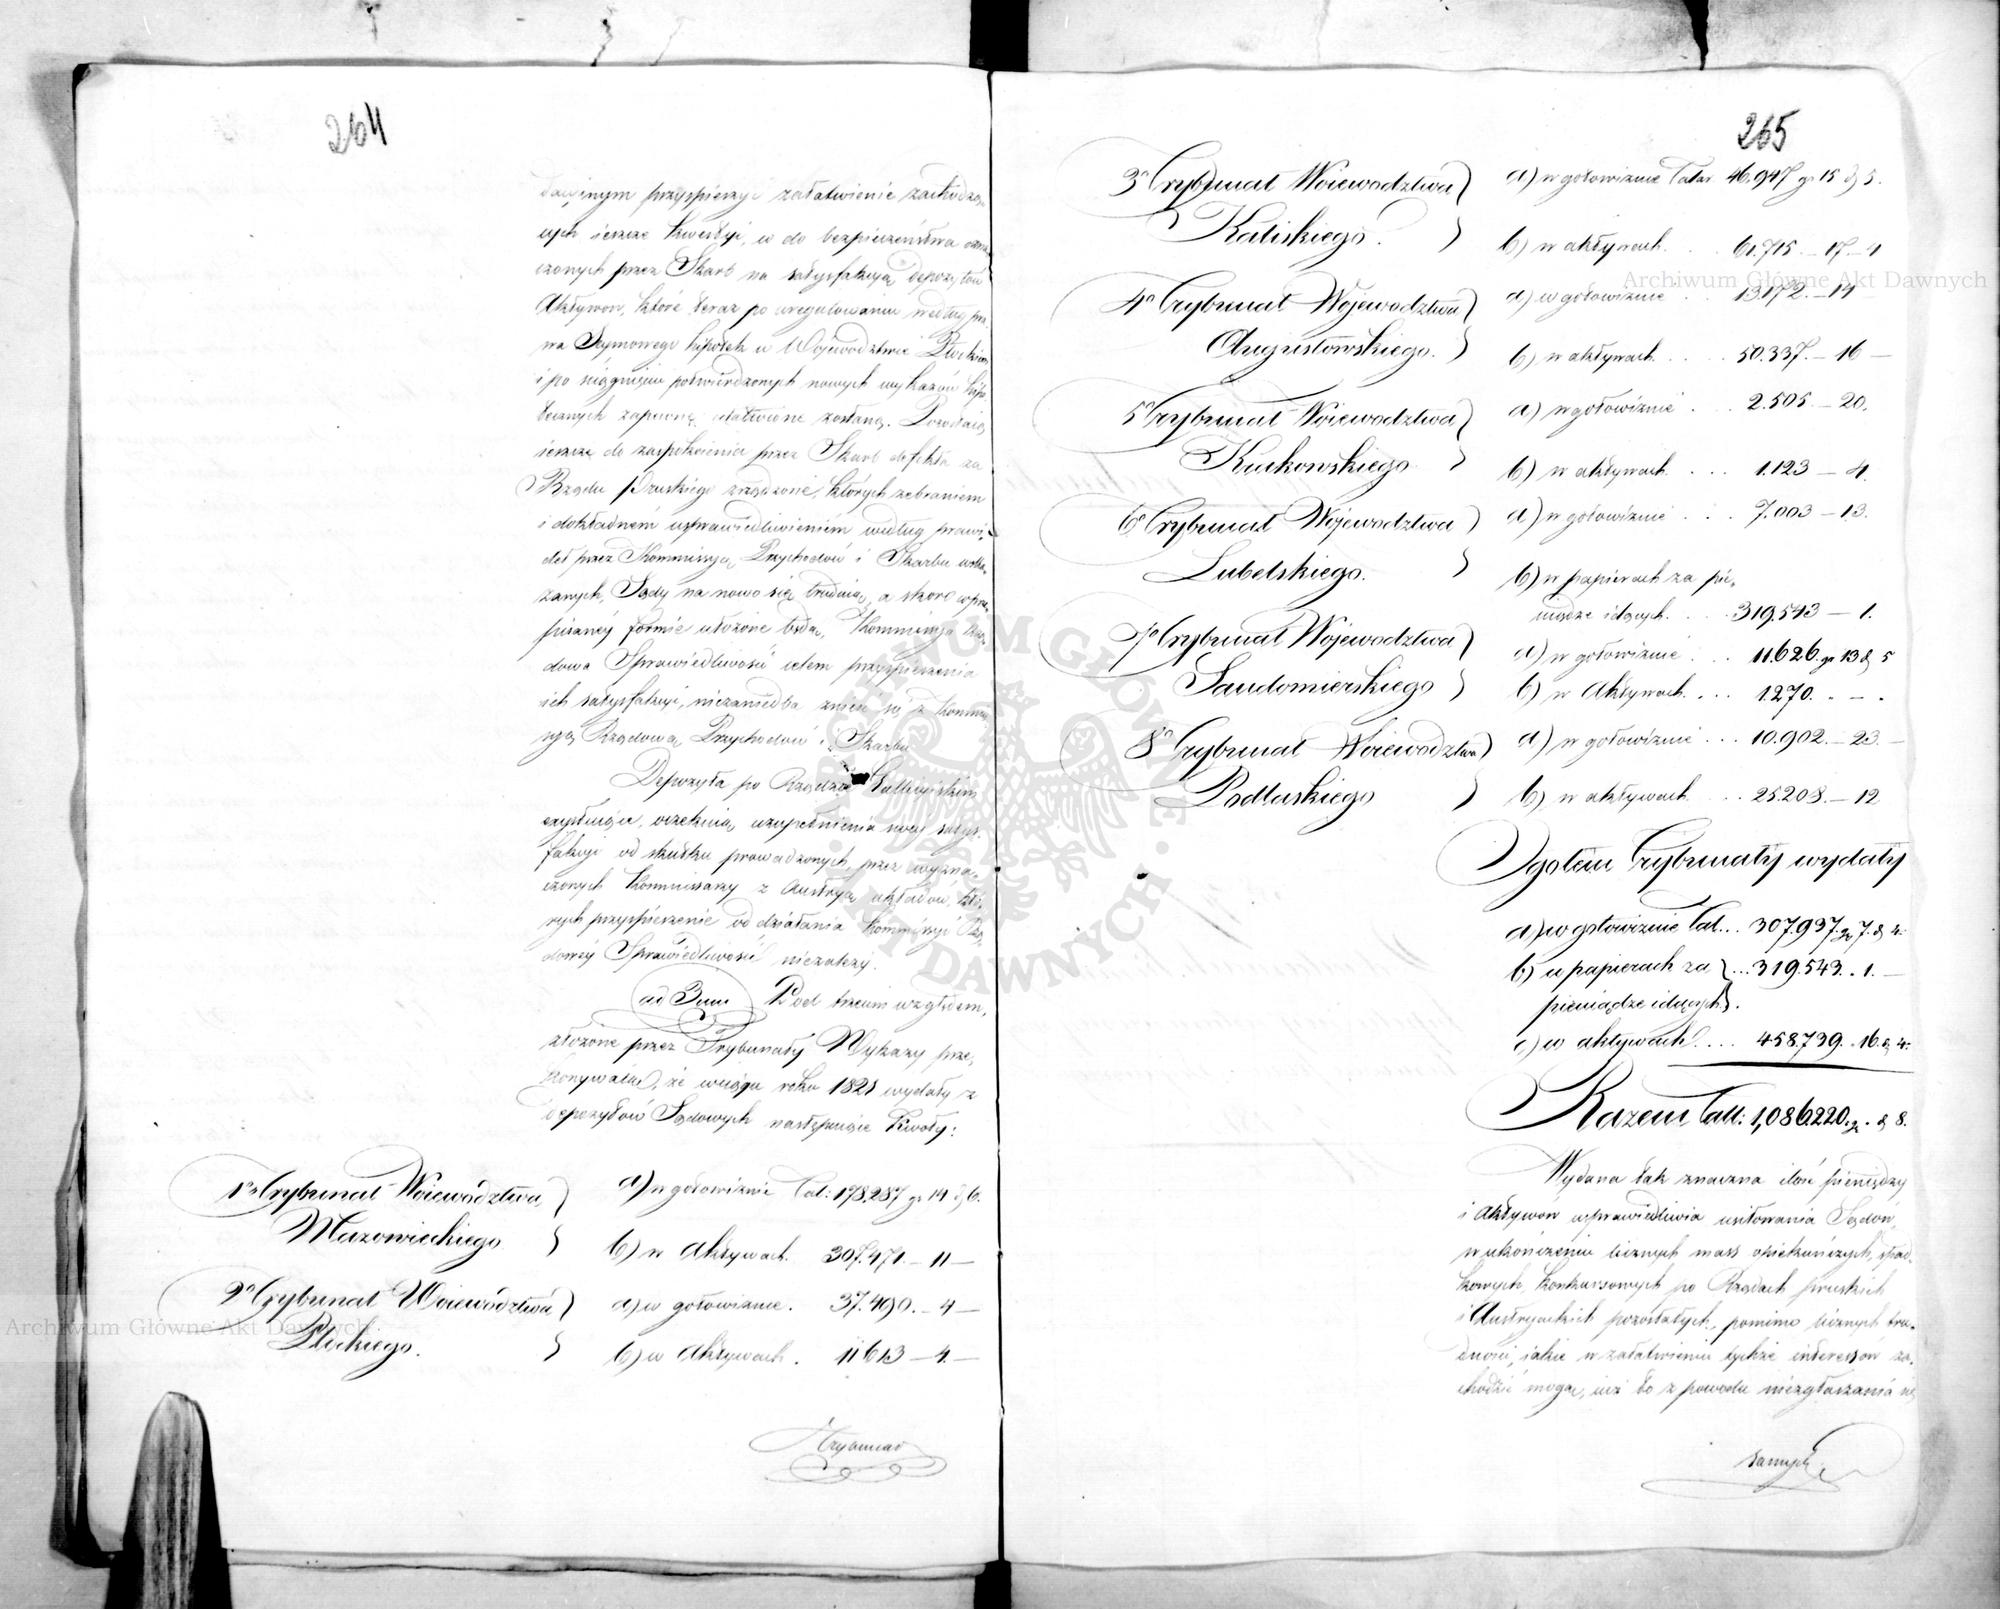 264
dalszym przyspieszyć załatwienie zachodzą-
cych ieszcze kwestyi, w do bezpieczeństwa
czonych przez Skarb na satysfakcyą depozytów
Aktywów, które teraz po uregulowaniu według pra-
wa Seymowego hipotek w Woiewództwie Płockim
i po ściągnięciu potwierdzonych nowych wykazów hipo-
tecznych zapewne ułatwione zostaną. Pozostaią
ieszcze do zaspokoienia przez Skarb defekta za
Rządu Pruskiego zrządzone, których zebraniem
i dokładnem usprawiedliwieniem według prawi-
deł przez Kommissyą Przychodów i Skarbu wska-
zanych, Sądy na nowo się trudnią, a skoro w prze-
pisaney formie ułożone będą, Kommissya Rzą-
dowa Sprawiedliwości celem przyspieszenia
ich satysfakcyi, niezaniedba znieść się z Kommis-
syą Rządową Przychodów i Skarbu.
Depozyta po Rządzie Gallicyiskim
exystuiące, oczekuią uzupełnienia swey satys-
fakcyi od skutku prowadzonych, przez wyzna-
czonych Kommissarzy z Austryą układów, któ-
rych przyspieszenie od działania Kommissyi Rzą-
dowey Sprawiedliwości niezależy.
ad 3um Pod trzecim względem,
złożone przez Trybunały Wykazy prze-
konywaią, że wciągu roku 1821 wydały z
depozytów Sądowych następuiące kwoty:
1o Trybunał Woiewództwa } a) w gotowiźnie Tal: 178.287 gr 14 ₰ 6.
Mazowieckiego } b) w Aktywach. 307.471. – 11 –
2o Trybunał Woiewództwa } a) w gotowiźnie. 37.490. – 4 –
Płockiego. } b) w Aktywach. 11613 – 4. –
Trybunał
265
3o Trybunał Woiewództwa } a) w gotowiźnie Talar 46.947 gr 15 ₰ 5.
Kaliskiego. } b) w aktywach. . . 61.715. – 17. – 4
4o Trybunał Woiewództwa } a) w gotowiźnie . . 13.172. – 14
Augustowskiego. } b) w aktywach. . . . 50.337. – 16 –
5o Trybunał Woiewództwa } a) w gotowiźnie . . . 2.505. – 20.
Krakowskiego. } b) w aktywach. . . . 1.123 – 4.
6o Trybunał Woiewództwa } a) w gotowiźnie . . . 7.003 – 13.
Lubelskiego. } b) w papierach za pie-
niądze idących. . . . 319.543 – 1.
7o Trybunał Woiewództwa } a) w gotowiźnie . . . 11.626. gr 13 ₰ 5
Sandomierskiego } b) w Aktywach. . . . 1.270. . – .
8o Trybunał Woiewództwa } a) w gotowiźnie . . . 10.902. – 23. –
Podlaskiego } b) w aktywach. . . . 25.208. – 12
Ogółem Trybunały wydały
a) w gotowiźnie Tal. . . 307.937. gr 7. ₰ 4.
b) w papierach za } . . . 319.543. . 1. –
pieniądze idących } .
c) w aktywach. . . . 458.739. . 16. ₰ 4.
Razem Tall: 1,086.220. gr . ₰ 8.
Wydana tak znaczna ilość pieniędzy
i Aktywów usprawiedliwia usiłowania Sądów,
w ukończeniu licznych mass opiekuńczych, spad-
kowych, konkursowych po Rządach pruskich
i Austryackich pozostałych, pomimo licznych tru-
dności, iakie w załatwieniu tychże interessów za-
chodzić mogą, iuż to z powodu niezgłaszania
samych
Archiwum Główne Akt Dawnych
Archiwum Główne Akt Dawnych
ARCHIWUM GŁÓWNE AKT DAWNYCH